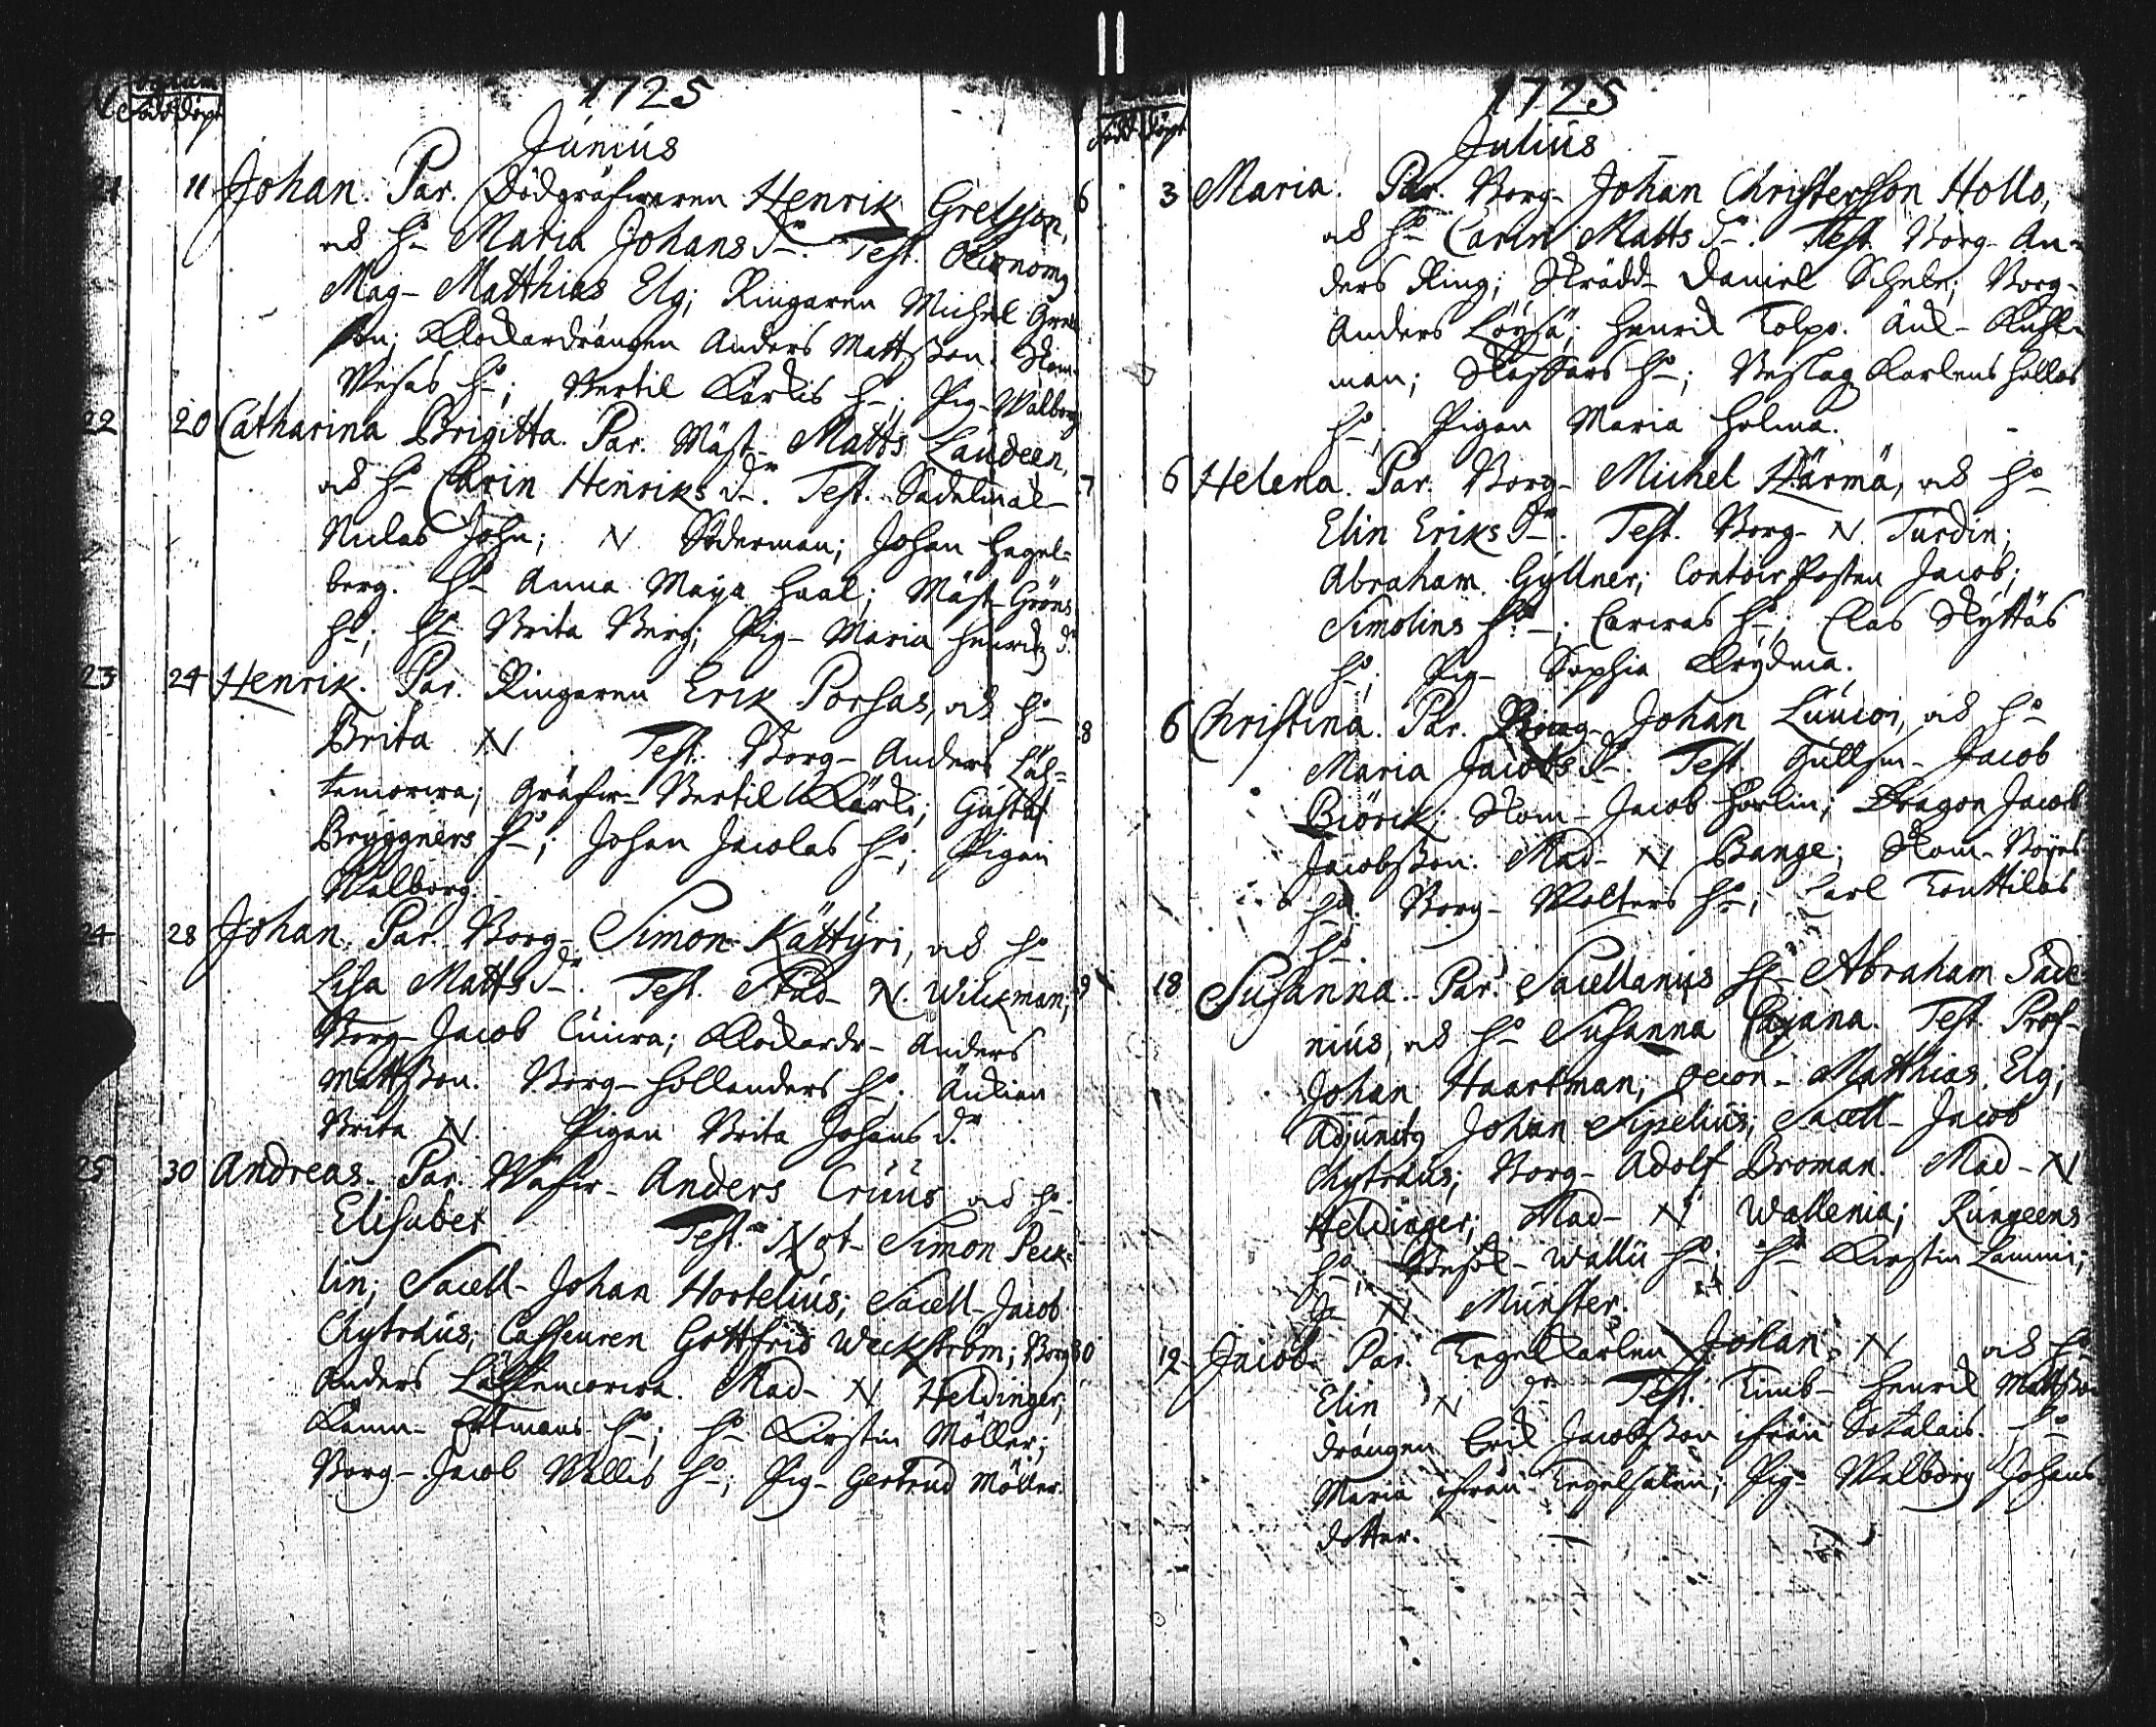 1725
Junius
21 11 Johan. Par. Dödgräfwaren Henrik Grelsson,
ok h:o Maria Johans d:r. Test. Oeconomg
Mag- Matthias Elg; Ringaren Michel Grels
son; Klockardrängen Anders Mattsson. Skom-
h:o; Bertil Kärkis h:o; Pig- Walborg
22 20 Catharina Brigitta. Par. Mäst- Matts Laudeen,
ok h:o Carin Henriks d:r. Test. Sadelmak-
Niclas John; N Söderman; Johan Hagel-
berg. h:o Anna Maja Haal; Mäst- Gröns
h:o; h:o Brita Berg; Pig- Maria Henriks d:r
23 24 Henrik. Par. Ringaren Erik Porsas, ok h:o
Brita N Test. Borg- Anders Läh-
tenkorwa; Gräfw- Bertil Kärki; Gustaf
Bryggners h:o; Johan Jacolas h:o; Pigan
Walborg
24 28 Johan. Par. Borg- Simon Kättyri, ok h:o
Lisa Matts d:r. Test. Stud- N. Wilckman;
Borg- Jacob; Klockardr- Anders
Mattsson. Borg- Hollenders h:o. Änkian
Brita N. Pigan Brita Johans d:r
25 30 Andreas. Par. Wäfw- Anders Cruus ok h:o
Elisabet Test. Not- Simon Peck-
lin; Sacell- Johan Hortelius; Sacell- Jacob
Chytræus; Casseuren Gottfrid Weckström; Borg
Anders Lähtencorwa. Mad- N Heldinger;
Kamn- Ertmans h:o; h:o Kirstin Möller;
Borg- Jacob Wallis h:o; Pig- Gertrud Möller.
1725
Julius
Född döpt
6 3 Maria. Par. Borg- Johan Christersson Hollo,
ok h:o Carin Matts d:r. Test. Borg- An-
ders Ring; Skrädd- Daniel Schele; Borg-
Anders Löysä; Henrik Tolpo. Änk-
man; h:o; Karlens Hollos
h:o; Pigan Maria Holma.
7 6 Helena. Par. Borg- Michel Härmä, ok h:o
Elin Eriks d:r. Test. Borg- N. Turdin;
Abraham Gyllner; Jacob;
Simolins h:o; h:o; Clas Skyttäs
h:o; Pig- Sophia
8 6 Christina. Par. Borg- Johan Luucoi, ok h:o
Maria Jacobs d:r. Test. Gullsm- Jacob
Biörck; Skom- Jacob Forlin; Dragon Jacob
Jacobsson. Mad- N Bange; Skom-
h:o. Borg- Wolters h:o; Carl Tonttilas
h:o
9 18 Susanna. Par. Sacellanus H- Abraham Sade-
nius, ok h:o Susanna Cajana. Test. Prof-
Johan Haartman; Oecon- Matthias Elg;
Adjunctg Johan Sipelius; Sacell- Jacob
Chytræus; Borg- Adolf Broman. Mad- N
Heldinger; Mad- N Wallenia; Rungeens
h:o; Wallii h:o; h:o Kirstin Lammi;
J- N Münster.
30 19 Jacob. Par. Tegelkarlen Johan N ok h:o
Elin N d:r Test. Timb- Henrik Mattsson
drängen Erik Jacobsson ifrån Sotalais. h:o
Maria ifrån Tegelsalen; Pig- Walborg Johans
dotter.